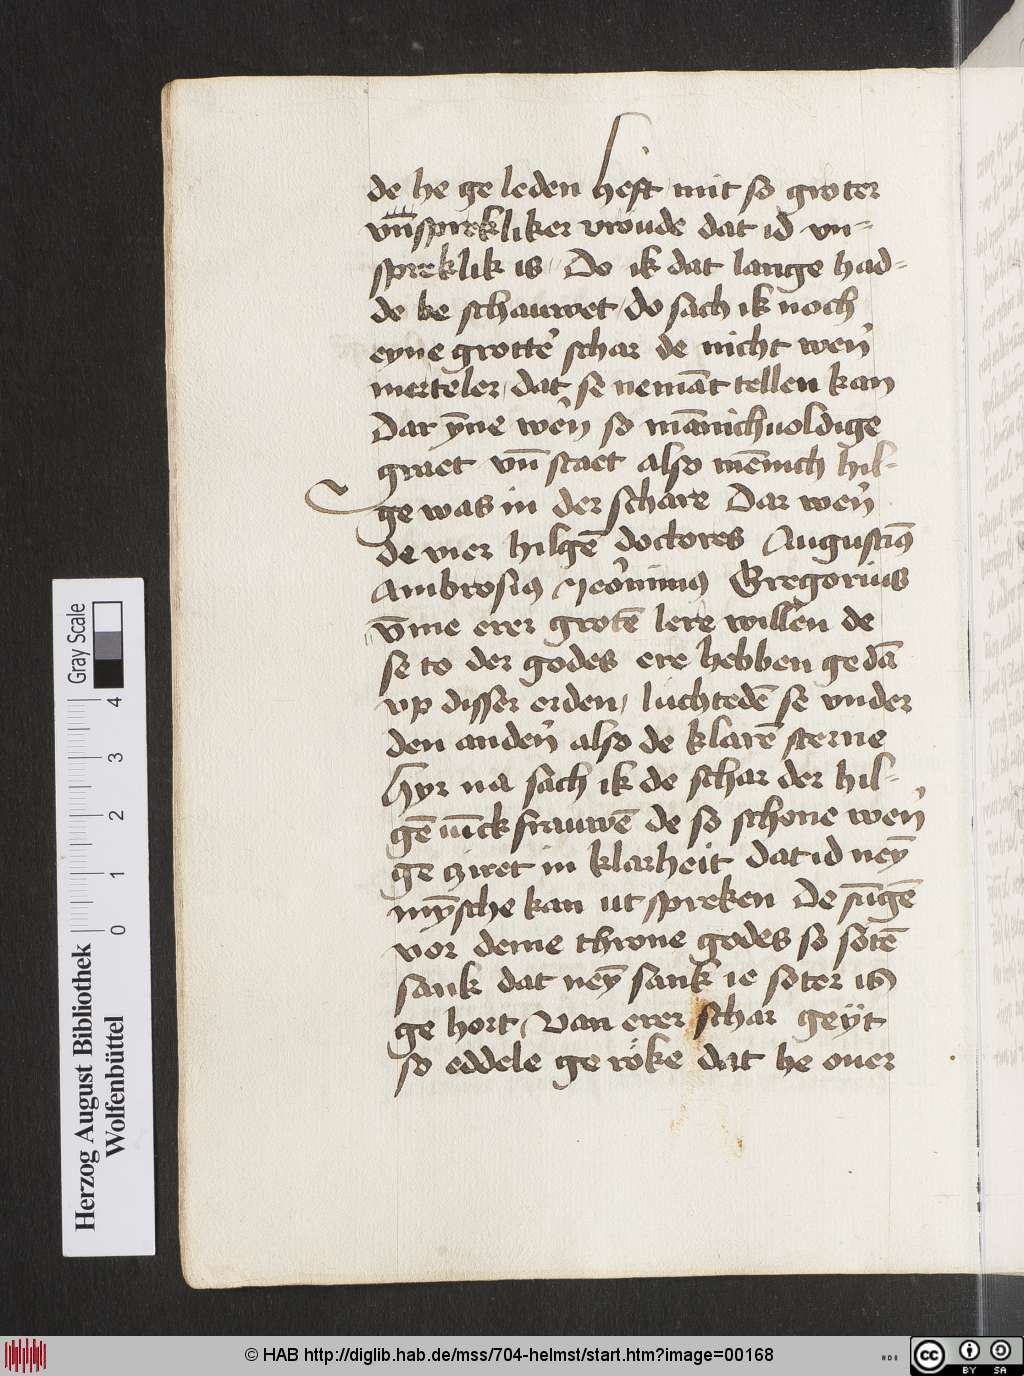 de he ge leden heft mit so groter
vn̄sprekliker vroude dat id vn-
spreklik is Do ik dat lange had-
de be schauwet do sach ik noch
eyne grottē schar de nicht wen̄
merteler dat se nemāt tellen kan
Dar ȳne wen̄ so mānichuoldige
graet vn̄ staet also mēnich hil-
ge was in der schare Dar wen̄
de vier hilgē doctores Augustin9
Ambrosi9 Jeronim9 Gregorius
v̄me erer grotē lere willen de
se to der godes ere hebben ge dā
vp disser erden luchtedē se vnder
den anden̄ also de klarē sterne
Hyr na sach ik de schar der hil-
gē iūckfrauwē de so schone wen̄
ge ziret in klarheit dat id neȳ
mȳsche kan ut spreken De sūgē
vor deme throne godes so sotē
sank dat neȳ sank ie soter is
ge hort Van erer schar geÿt
so eddele ge röke dat he ouer
Herzog August Bibliothek
Wolfenbüttel
Gray Scale
0 1 2 3 4
© HAB http://diglib.hab.de/mss/704-helmst/start.htm?image=00168
cc BY SA